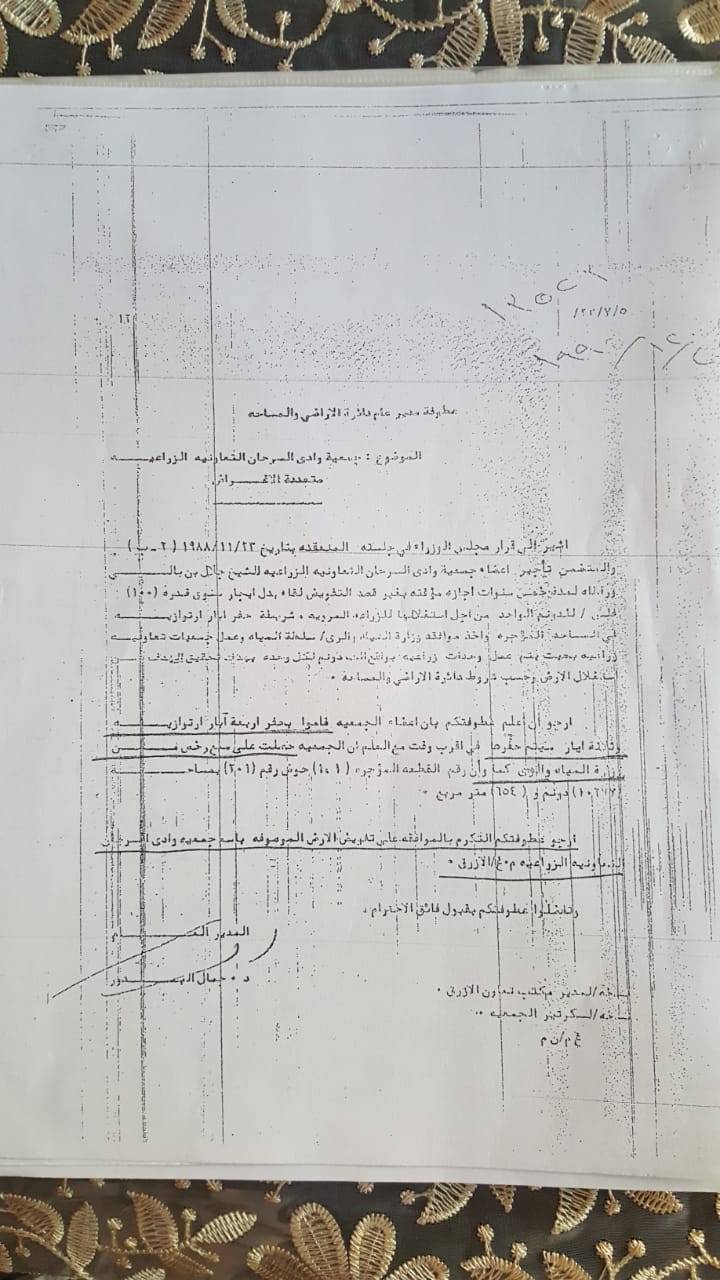 ١٢
عطوفة مدير عام دائرة الاراضي والمساحه
الموضوع : جمعية وادى السرحان التعاونيه الزراعيـــــه
متعددة الاغـــراض
اشير الى قرار مجلس الوزراء في جلسته المنعقده بتاريخ ١٩٨٨/١١/٢٣ ( ٢ - ب )
والمتضمن تأجير اعضاء جمعية وادى السرحان التعاونيه الزراعيه للشيخ
لمدة خمس سنوات اجازه مؤقته بغير قصد التفويض لقاء بدل ايجار سنوى قدره (١٠٠)
فلس / للدونم الواحد من اجل استغلالها للزراعه المرويه ، شريطة حفر ابار ارتوازيـــه
في المساحه المؤجره واخذ موافقه وزارة المياه والرى/ سلطة المياه وعمل جمعيات تعاونيـــه
زراعيه بحيث يتم عمل وحدات زراعيه بواقع الف دونم لكل وحده بهدف تحقيق الهدف مـــن
استغلال الارض وحسب شروط دائرة الاراضي والمساحة .
ارجو أن أعلم عطوفتكم بان اعضاء الجمعيه قاموا بحفر اربعة آبار ارتوازيـــــه
وثلاثة ابار سيتم حفرها في اقرب وقت مع العلم ان الجمعيه حصلت على رخص مـــن
وزارة المياه والرى كما وأن رقم القطعه المؤجره حوض رقم بمساحـــــة
دونم و ( ٦٥٤) متر مربع .
ارجو عطوفتكم التكرم بالموافقه على تفويض الارض الموصوفه باسم جمعيه وادى السرحان
التعاونيه الزراعيه م٠غ/الازرق .
وتفضلوا عطوفتكم بقبول فائق الاحترام ،
المدير العـــــام
د . جمال البـــدور
نسخة/لمدير مكتب تعاون الازرق .
نسخة/لسكرتير الجمعيه ..
غ م/ن م